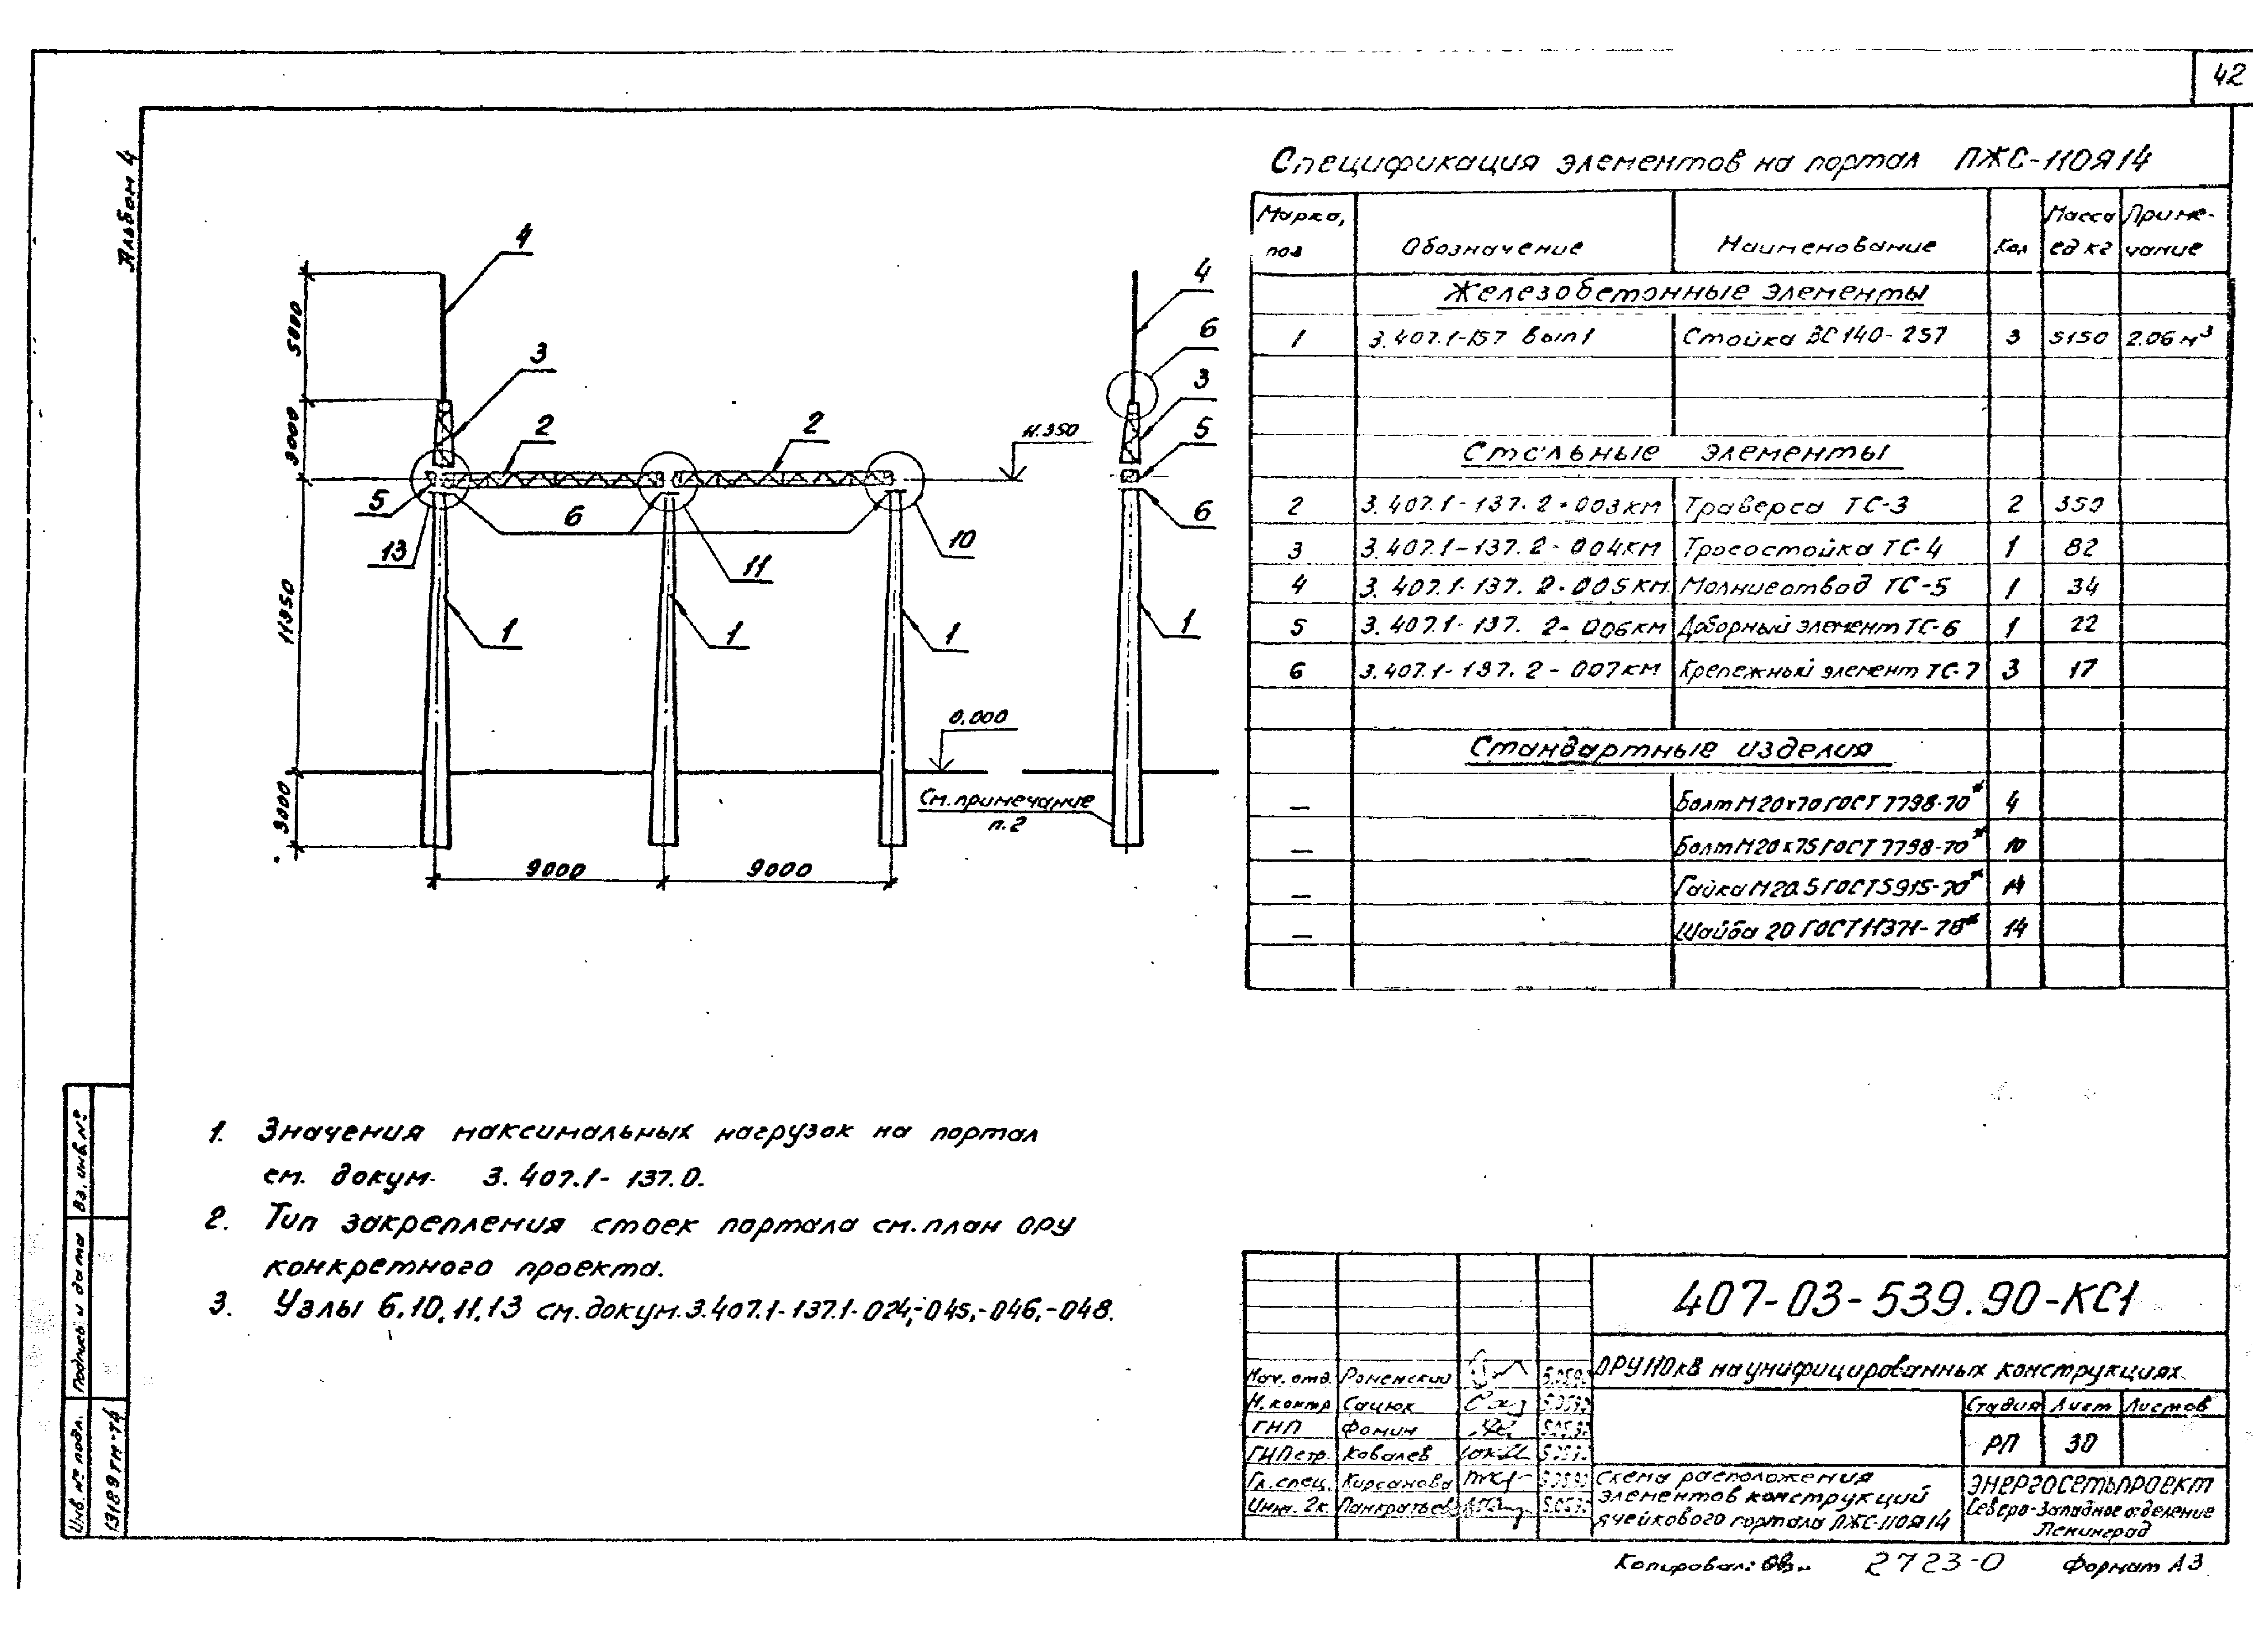 42
Альбом 4
Спецификация элементов на портал ПЖС-110Я14
Марка, поз
Обозначение
Наименование
Кол
Масса ед кг
Приме-чание
Железобетонные элементы
1 3.407.1-157 вып1 Стойка ВС140-257 3 5150 2.06 м³
Стальные элементы
2 3.407.1-137.2-003КМ Траверса ТС-3 2 350
3 3.407.1-137.2-004КМ Тросостойка ТС-4 1 82
4 3.407.1-137.2-005КМ Молниеотвод ТС-5 1 34
5 3.407.1-137.2-006КМ Доборный элемент ТС-6 1 22
6 3.407.1-137.2-007КМ Крепежный элемент ТС-7 3 17
Стандартные изделия
— Болт М20х70 ГОСТ 7798-70* 4
— Болт М20х75 ГОСТ 7798-70* 10
— Гайка М20.5 ГОСТ 5915-70* 14
— Шайба 20 ГОСТ 11371-78* 14
4
4
6
3
3
2
2
5
5
6
6
13
11
10
1
1
1
1
5000
3000
11350
3000
11.350
0.000
См. примечание
п.2
9000
9000
1. Значения максимальных нагрузок на портал
см. докум. 3.407.1-137.0.
2. Тип закрепления стоек портала см. план ОРУ
конкретного проекта.
3. Узлы 6,10,11,13 см. докум. 3.407.1-137.1-024,-045,-046,-048.
Вз. инв. №
Подпись и дата
Инв. № подл.
13189тм-т4
407-03-539.90-КС1
ОРУ110кВ на унифицированных конструкциях
Нач. отд. Роменский
Н. контр Сацюк
ГИП Фомин
ГИП стр. Ковалев
Гл. спец. Кирсанова
Инж. 2к. Панкратьев
Стадия Лист Листов
РП 30
Схема расположения
элементов конструкций
ячейкового портала ПЖС-110Я14
ЭНЕРГОСЕТЬПРОЕКТ
Северо-Западное отделение
Ленинград
Копировал:
2723-0
Формат А3